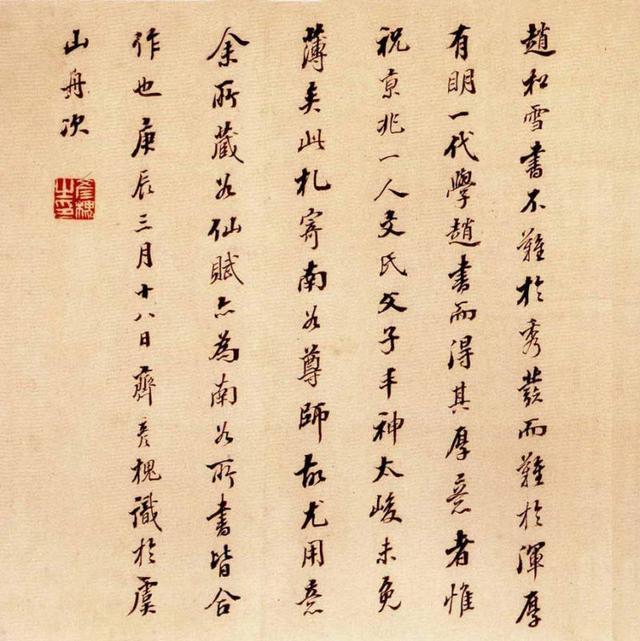 趙松雪書不難於秀發而難於渾厚
有明一代學趙書而得其厚意者惟
祝京兆一人文氏父子丰神太峻未免
薄矣此札寄南谷尊師故尤用意
余所藏谷仙賦亦為南谷所書皆合
作也庚辰三月十八日齊彥槐識於虞
山舟次
彥槐之印